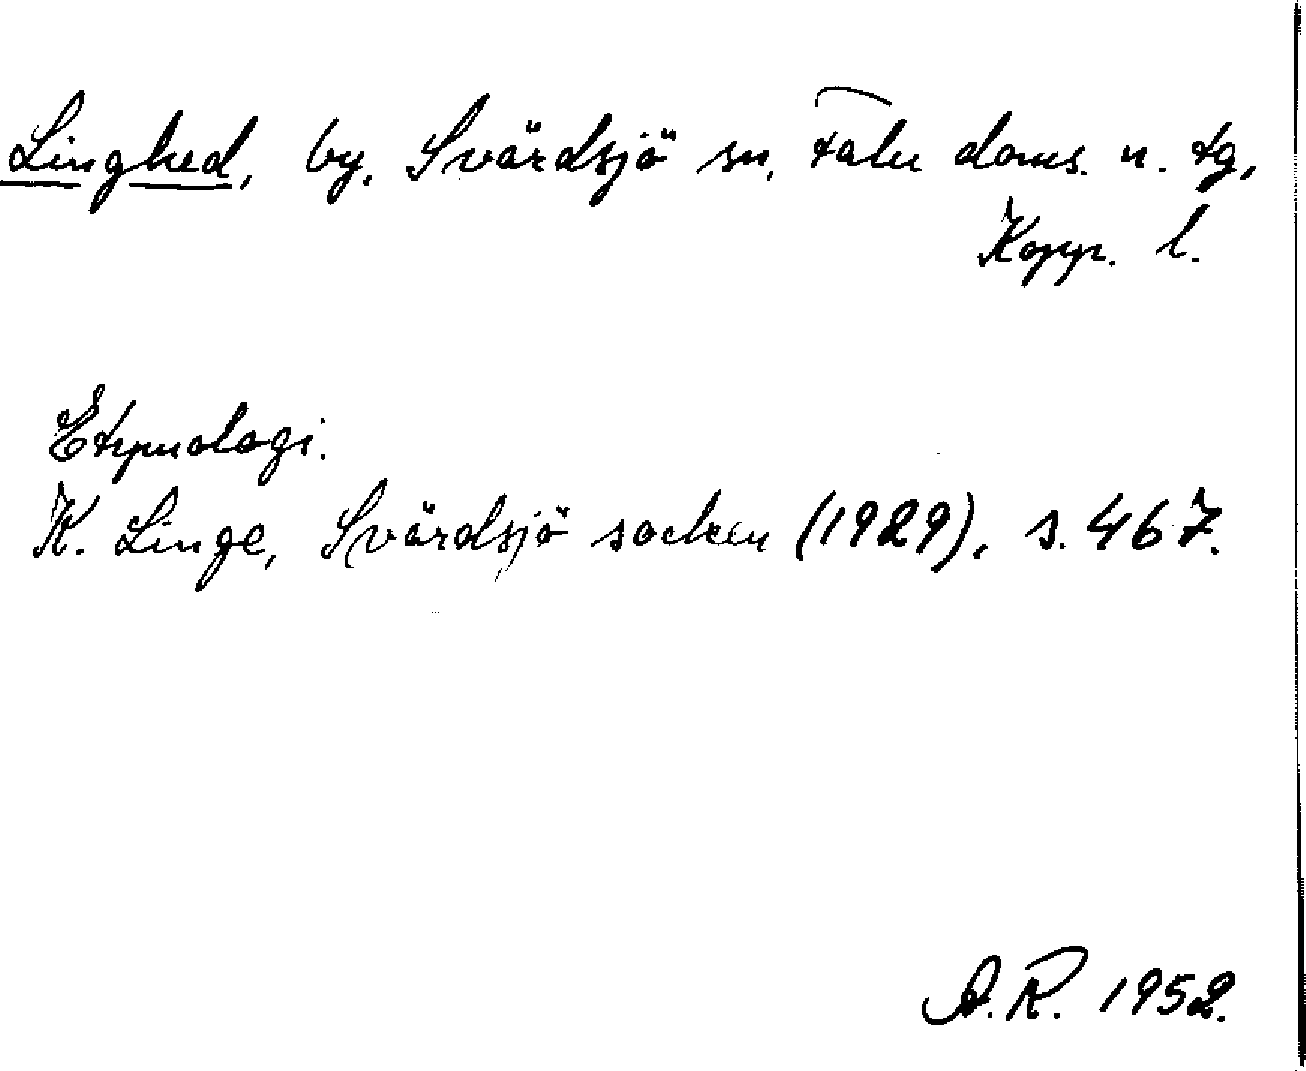 Linghed, by, Svärdsjö sn, Falu doms. n. tg,
Kopp. l.
Etymologi.
K. Linge, Svärdsjö socken (1929), s. 467.
A.R. 1952.